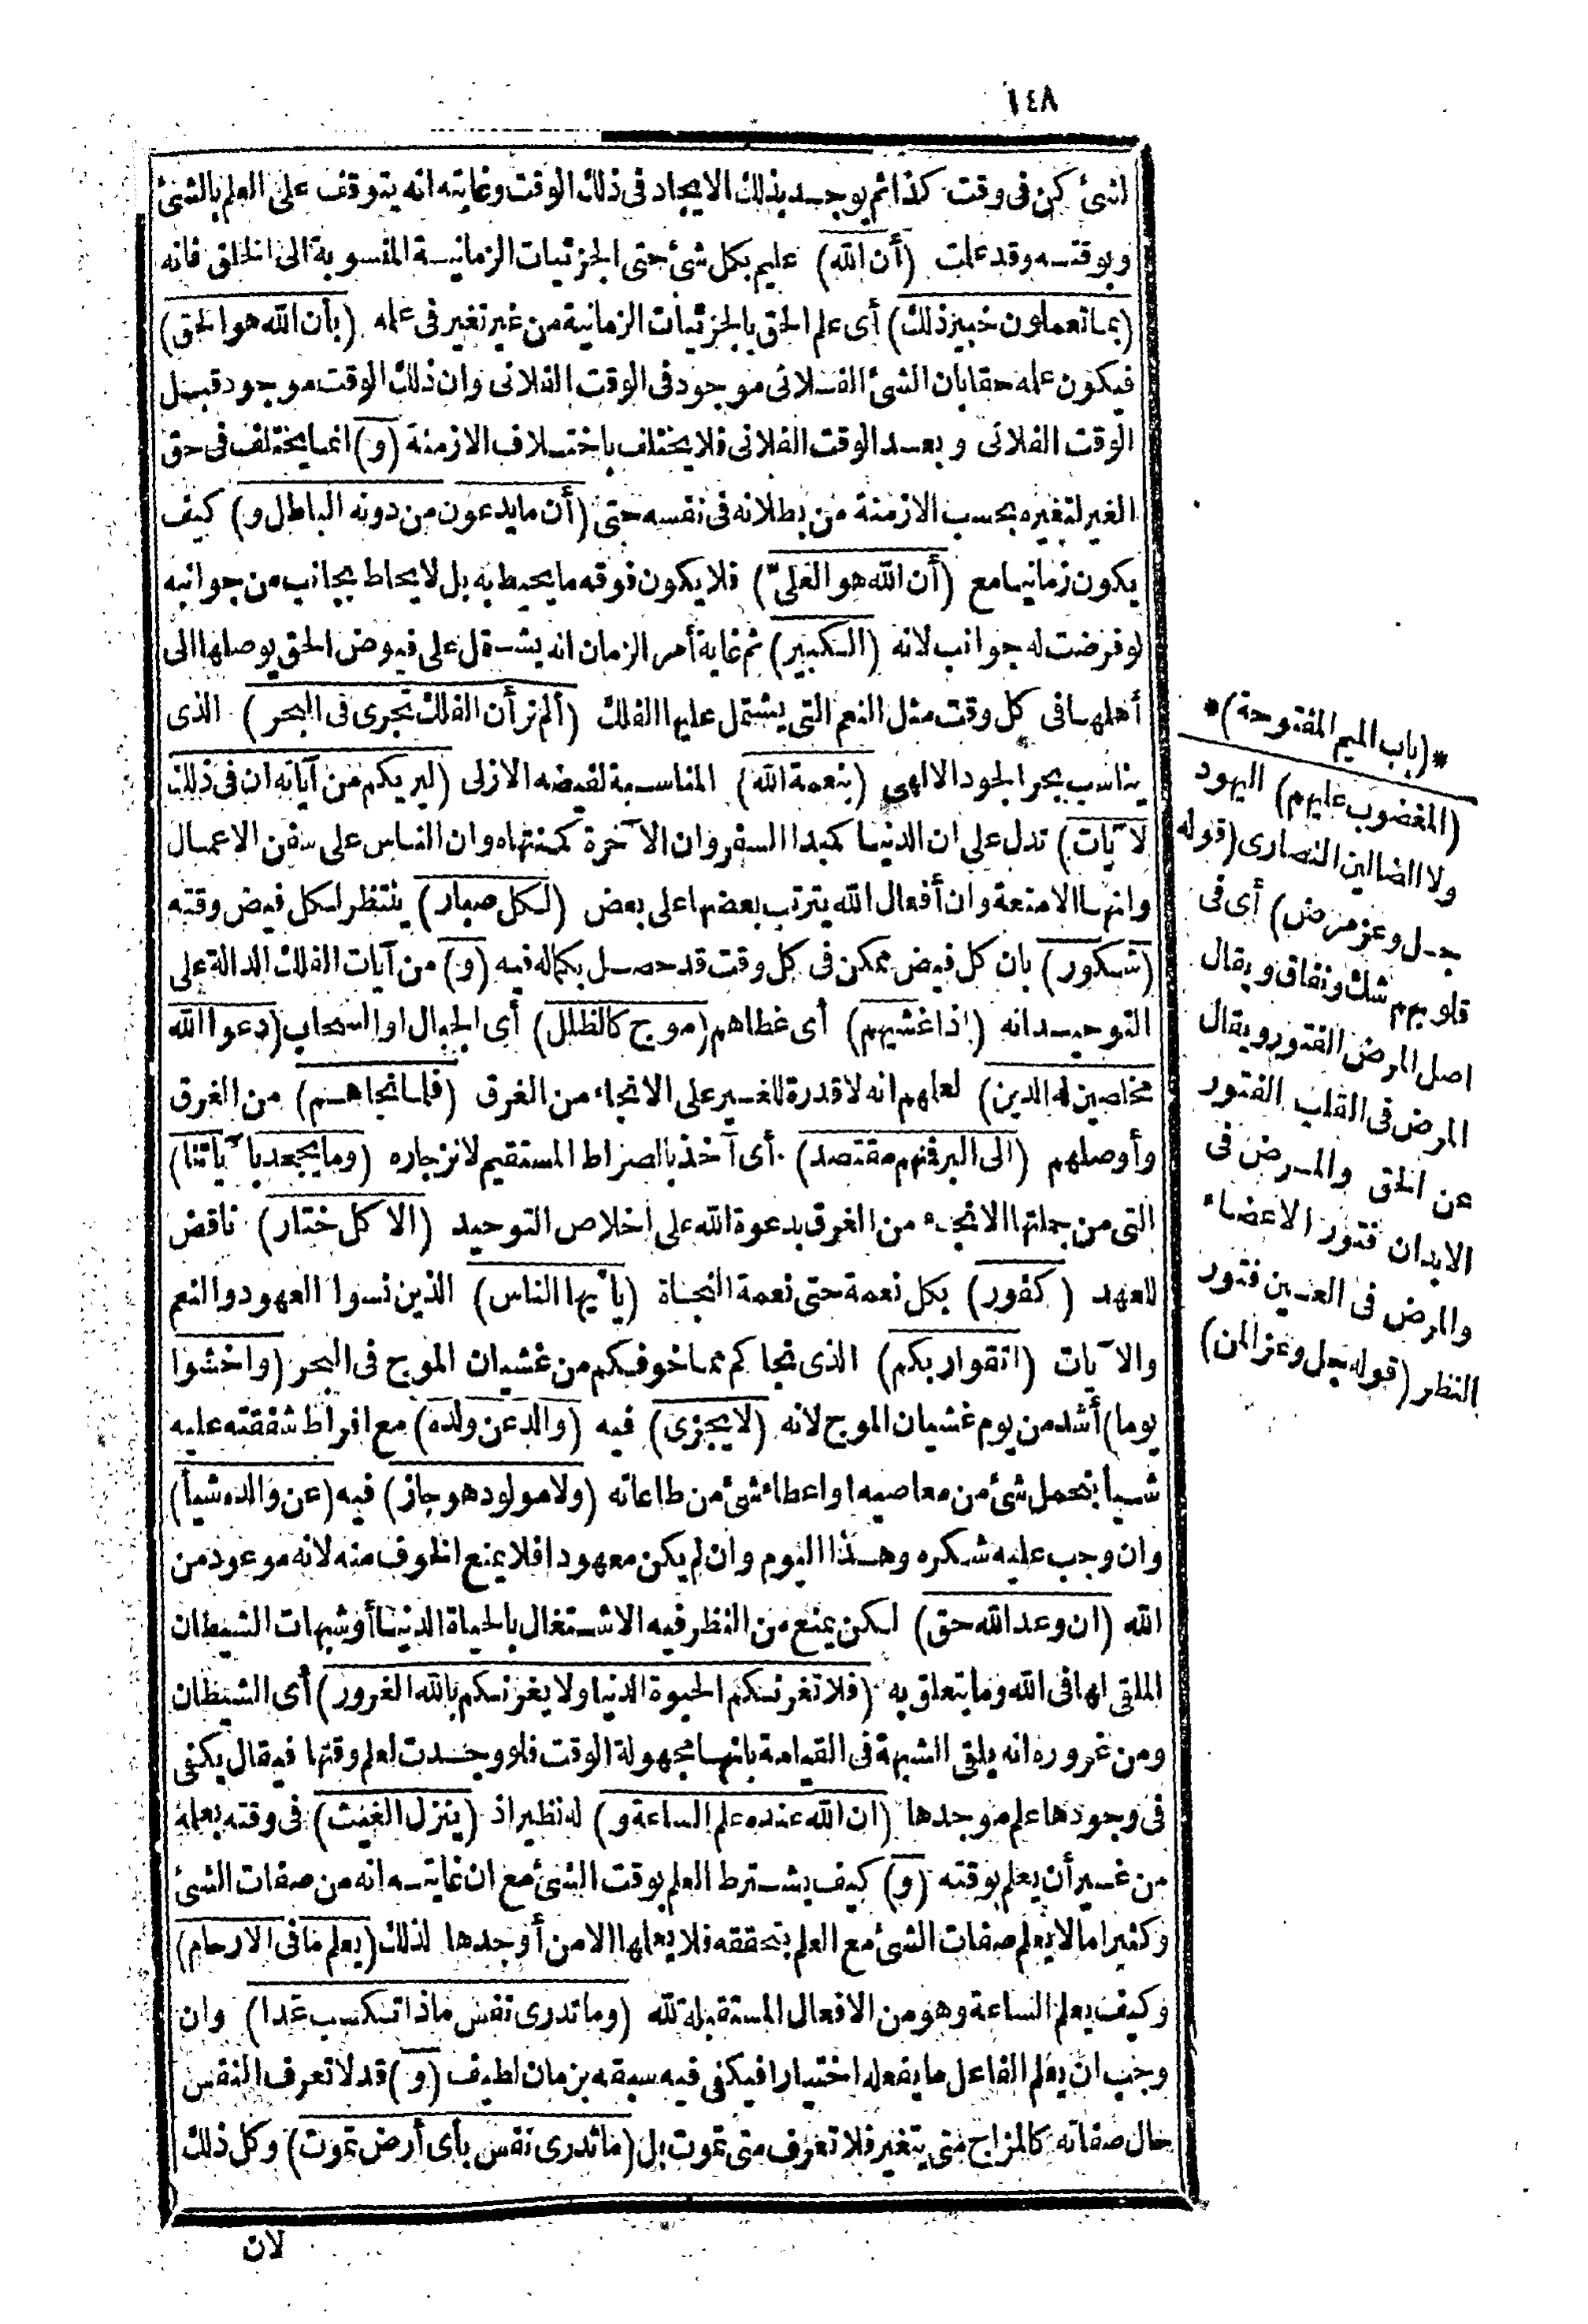 ١٤٨
لشئ كن فى وقت كذا ثم يوجد بذلك الايجاد فى ذلك الوقت وغايته انه يتوقف على العلم بالشئ
وبوقته وقد علمت (أن الله) عليم بكل شئ حتى الجزئيات الزمانية المنسوبة الى الخلق فانه
(بما تعملون خبير ذلك) أى علم الحق بالجزئيات الزمانية من غير تغير فى علمه (بأن الله هو الحق)
فيكون علمه حقا بان الشئ الفلانى موجود فى الوقت الفلانى وان ذلك الوقت موجود قبل
الوقت الفلانى وبعد الوقت الفلانى فلا يختلف باختلاف الازمنة (و) انما يختلف فى حق
الغير لتغيره بحسب الازمنة من بطلانه فى نفسه حتى (أن ما يدعون من دونه الباطل و) كيف
يكون زمانيا مع (أن الله هو العلى) فلا يكون فوقه ما يحيط به بل لا يحاط بجانب من جوانبه
لو فرضت له جوانب لانه (الكبير) ثم غاية أمر الزمان انه يشتمل على فيوض الحق يوصلها الى
أهلها فى كل وقت مثل النعم التى يشتمل عليها الفلك (ألم تر أن الفلك تجرى فى البحر) الذى
يناسب بحر الجود الالهى (بنعمة الله) المناسبة لفيضه الازلى (ليريكم من آياته ان فى ذلك
لآيات) تدل على ان الدنيا كمبدا السفر وان الآخرة كمنتهاه وان الناس على سفن الاعمال
وانها الامتعة وان أفعال الله يترتب بعضها على بعض (لكل صبار) ينتظر لكل فيض وقته
(شكور) بان كل فيض ممكن فى كل وقت قد حصل بكماله فيه (و) من آيات الفلك الدالة على
التوحيد انه (اذا غشيهم) أى غطاهم (موج كالظلل) أى الجبال او السحاب (دعوا الله
مخلصين له الدين) لعلهم انه لا قدرة للغير على الانجاء من الغرق (فلما نجاهم) من الغرق
وأوصلهم (الى البر فمنهم مقتصد) أى آخذ بالصراط المستقيم لانزجاره (وما يجحد بآياتنا)
التى من جملتها الانجاء من الغرق بدعوة الله على اخلاص التوحيد (الا كل ختار) ناقض
للعهد (كفور) بكل نعمة حتى نعمة النجاة (يا أيها الناس) الذين نسوا العهود والنعم
والآيات (اتقوا ربكم) الذى نجاكم مما خوفكم من غشيان الموج فى البحر (واخشوا
يوما) أشد من يوم غشيان الموج لانه (لا يجزى) فيه (والد عن ولده) مع افراط شفقته عليه
شيأ بتحمل شئ من معاصيه او اعطاء شئ من طاعاته (ولا مولود هو جاز) فيه (عن والده شيأ)
وان وجب عليه شكره وهذا اليوم وان لم يكن معهودا فلا يمنع الخوف منه لانه موعود من
الله (ان وعد الله حق) لكن يمنع من النظر فيه الاشتغال بالحياة الدنيا أو شبهات الشيطان
الملقى لها فى الله وما يتعلق به (فلا تغرنكم الحيوة الدنيا ولا يغرنكم بالله الغرور) أى الشيطان
ومن غروره انه يلقى الشبهة فى القيامة بانها مجهولة الوقت فلو وجدت لعلم وقتها فيقال يكفى
فى وجودها علم موجدها (ان الله عنده علم الساعة و) له نظير اذ (ينزل الغيث) فى وقته بعلمه
من غير أن يعلم بوقته (و) كيف يشترط العلم بوقت الشئ مع ان غايته انه من صفات الشئ
وكثيرا ما لا يعلم صفات الشئ مع العلم بتحققه فلا يعلها الا من أوجدها لذلك (يعلم ما فى الارحام)
وكيف يعلم الساعة وهو من الافعال المستقبلة لله (وما تدرى نفس ماذا تكسب غدا) وان
وجب ان يعلم الفاعل ما يفعله اختيارا فيكفى فيه سبقه بزمان لطيف (و) قد لا تعرف النفس
حال صفاته كالمزاج متى يتغير فلا تعرف متى تموت بل (ما تدرى نفس بأى أرض تموت) وكل ذلك
لان
*(باب الميم المفتوحة)*
(المغضوب عليهم) اليهود
ولا الضالين النصارى (قوله
جل وعز مرض) أى فى
قلوبهم شك ونفاق ويقال
اصل المرض الفتور ويقال
المرض فى القلب الفتور
عن الحق والمرض فى
الابدان فتور الاعضاء
والمرض فى العين فتور
النظر (قوله جل وعز المن)